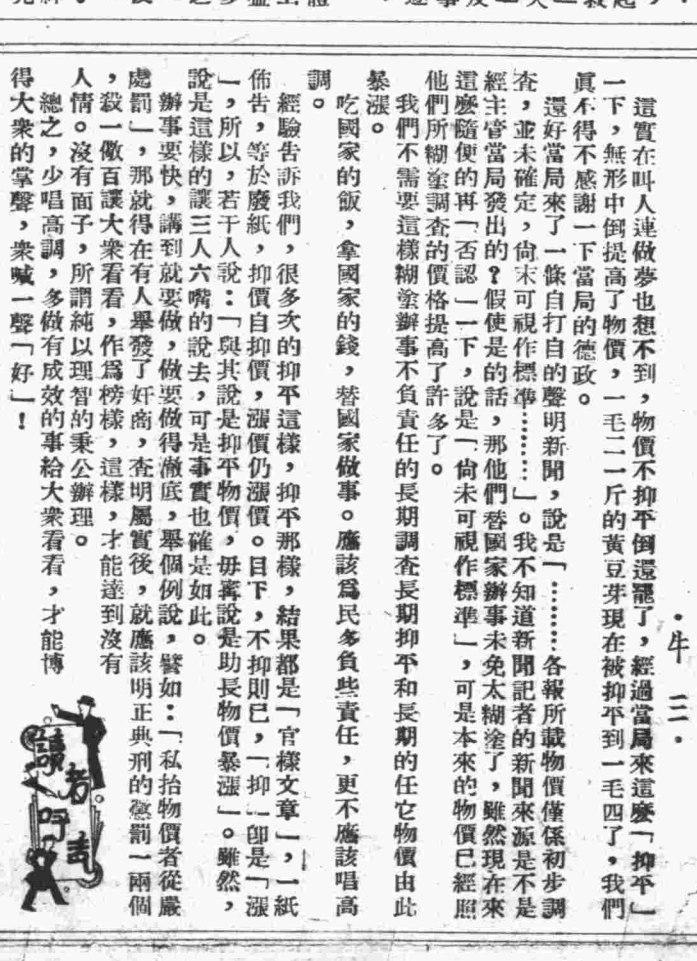 ·牛 三·
這實在叫人連做夢也想不到，物價不抑平倒還罷了，經過當局來這麽「抑平」
一下，無形中倒提高了物價，一毛二一斤的黃豆芽現在被抑平到一毛四了，我們
眞不得不感謝一下當局的德政。
還好當局來了一條自打自的聲明新聞，說是「………各報所載物價僅係初步調
査，並未確定，尙末可視作標準………」。我不知道新聞記者的新聞來源是不是
經主管當局發出的？假使是的話，那他們替國家辦事未免太糊塗了，雖然現在來
這麽隨便的再「否認」一下，說是「尙未可視作標準」，可是本來的物價已經照
他們所糊塗調査的價格提高了許多了。
我們不需要這樣糊塗辦事不負責任的長期調査長期抑平和長期的任它物價由此
暴漲。
吃國家的飯，拿國家的錢，替國家做事。應該爲民多負些責任，更不應該唱高
調。
經驗告訴我們，很多次的抑平這樣，抑平那樣，結果都是「官樣文章」，一紙
佈告，等於廢紙，抑價自抑價，漲價仍漲價。目下，不抑則已，一抑卽是「漲
」，所以，若干人說：「與其說是抑平物價，毋寗說是助長物價暴漲」。雖然，
說是這樣的讓三人六嘴的說去，可是事實也確是如此。
辦事要快，講到就要做，做要做得澈底，舉個例說，譬如：「私抬物價者從嚴
處罰」，那就得在有人舉發了奸商，査明屬實後，就應該明正典刑的懲罰一兩個
，殺一儆百讓大衆看看，作爲榜樣，這樣，才能達到沒有
人情。沒有面子，所謂純以理智的秉公辦理。
總之，少唱高調，多做有成效的事給大衆看看，才能博
得大衆的掌聲，衆喊一聲「好」！
讀者呼声